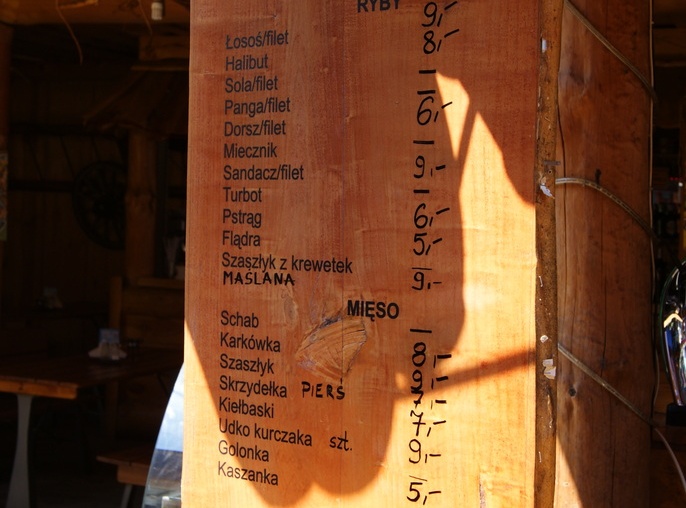 RYBY
Łosoś/filet 9,-
Halibut 8,-
Sola/filet –
Panga/filet –
Dorsz/filet 6,-
Miecznik –
Sandacz/filet 9,-
Turbot –
Pstrąg 6,-
Flądra 5,-
Szaszłyk z krewetek –
MAŚLANA 9,-
MIĘSO
Schab –
Karkówka 8,-
Szaszłyk
Skrzydełka PIERŚ
Kiełbaski 7,-
Udko kurczaka szt. 9,-
Golonka
Kaszanka 5,-